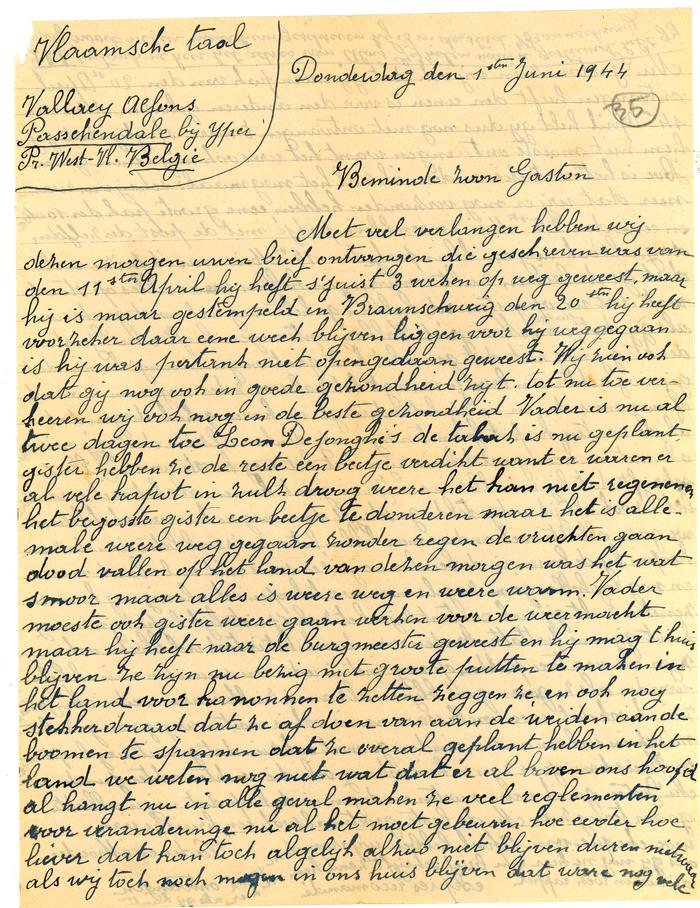 Vlaamsche taal
Vallaey Alfons
Passchendale bij Yper
Pr. West-Vl. Belgie
Donderdag den 1sten Juni 1944
35
Beminde zoon Gaston
Met veel verlangen hebben wij
dezen morgen uwen brief ontvangen die geschreven was van
den 11sten April hij heeft s'juist 3 weken op weg geweest, maar
hij is maar gestempeld in Braunschweig den 20sten hij heeft
voorzeker daar eene week blijven liggen voor hij weggegaan
is hij was pertank niet opengedaan geweest. Wij zien ook
dat gij nog ook in goede gezondheid zijt. tot nu toe ver-
keeren wij ook nog in de beste gezondheid Vader is nu al
twee dagen toe Leon Dejonghe's de tabak is nu geplant
gister hebben ze de reste een beetje verdikt want er waren er
al vele kapot in zulk droog weere het kan niet regenen,
het begoste gister een beetje te donderen maar het is alle-
male weere weg gegaan zonder regen de vruchten gaan
dood vallen op het land van dezen morgen was het wat
smoor maar alles is weere weg en weere warm. Vader
moeste ook gister weere gaan werken voor de weermacht
maar hij heeft naar de burgmeester geweest en hij mag t'huis
blijven ze zijn nu bezig met groote putten te maken in
het land voor kanonnen te zetten zeggen ze en ook nog
stekkerdraad dat ze af doen van aan de weiden aan de
boomen te spannen dat ze overal geplant hebben in het
land we weten nog niet wat dat er al boven ons hoofd
al hangt nu in alle geval maken ze veel reglementen
voor veranderinge nu al het moet gebeuren hoe eerder hoe
liever dat kan toch algelijk alzoo niet blijven duren nietwaar
als wij toch noch mogen in ons huis blijven dat ware nog vele